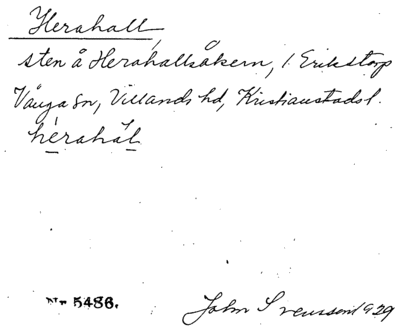 Herahall
sten å Herahallsåkern, 1 Erikstorp
Vånga sn, Villands hd, Kristianstads l.
hèrahál
No 5486. John Svensson 1929